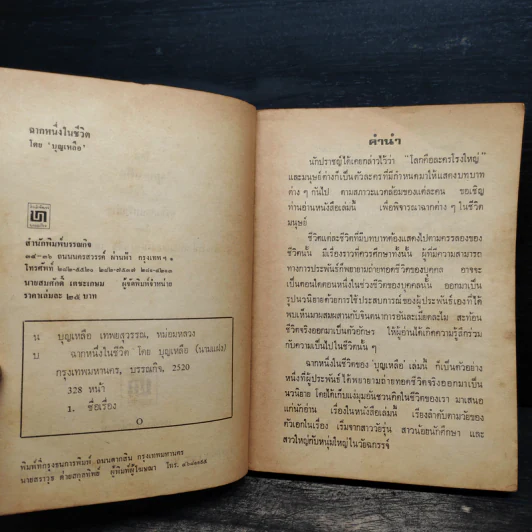 ฉากหนึ่งในชีวิต
โดย 'บุญเหลือ'
สำนักพิมพ์บรรณกิจ
๓๔-๓๖ ถนนนครสวรรค์ ผ่านฟ้า กรุงเทพฯ ๑
โทรศัพท์
นายสมศักดิ์ เตชะเกษม ผู้จัดพิมพ์จำหน่าย
ราคาเล่มละ ๒๕ บาท
น บุญเหลือ เทพยสุวรรณ, หม่อมหลวง
บ ฉากหนึ่งในชีวิต โดย บุญเหลือ (นามแฝง)
กรุงเทพมหานคร, บรรณกิจ, 2520
328 หน้า
1. ชื่อเรื่อง
O
พิมพ์ที่กรุงธนการพิมพ์ ถนนตากสิน กรุงเทพมหานคร
ผู้พิมพ์ผู้โฆษณา โทร.
คำนำ
นักปราชญ์ได้เคยกล่าวไว้ว่า "โลกคือละครโรงใหญ่"
และมนุษย์ต่างก็เป็นตัวละครที่มีกำหนดมาให้แสดงบทบาท
ต่าง ๆ กันไป ตามสภาวะแวดล้อมของแต่ละคน ขอเชิญ
ท่านอ่านหนังสือเล่มนี้ เพื่อพิจารณาฉากต่าง ๆ ในชีวิต
มนุษย์
ชีวิตแต่ละชีวิตที่มีบทบาทต้องแสดงไปตามครรลองของ
ชีวิตนั้น มีเรื่องราวที่ควรศึกษาทั้งนั้น ผู้ที่มีความสามารถ
ทางการประพันธ์ก็พยายามถ่ายทอดชีวิตของบุคคล อาจจะ
เป็นตอนใดตอนหนึ่งในช่วงชีวิตของบุคคลนั้น ออกมาเป็น
รูปนวนิยายด้วยการใช้ประสบการณ์ของผู้ประพันธ์เองที่ได้
พบเห็นมาผสมผสานกับจินตนาการอันละเมียดละไม สะท้อน
ชีวิตจริงออกมาเป็นตัวอักษร ให้ผู้อ่านได้เกิดความรู้สึกร่วม
กับความเป็นไปในชีวิตนั้น ๆ
ฉากหนึ่งในชีวิตของ 'บุญเหลือ' เล่มนี้ ก็เป็นตัวอย่าง
หนึ่งที่ผู้ประพันธ์ได้พยายามถ่ายทอดชีวิตจริงออกมาเป็น
นวนิยาย โดยได้เก็บแง่มุมอันชวนคิดในชีวิตของเรา มาเสนอ
แก่นักอ่าน เรื่องในหนังสือเล่มนี้ เรื่องลำดับตามวัยของ
ตัวเอกในเรื่อง เริ่มจากสาววัยรุ่น สาวน้อยนักศึกษา และ
สาวใหญ่กับหนุ่มใหญ่ในวัยฉกรรจ์